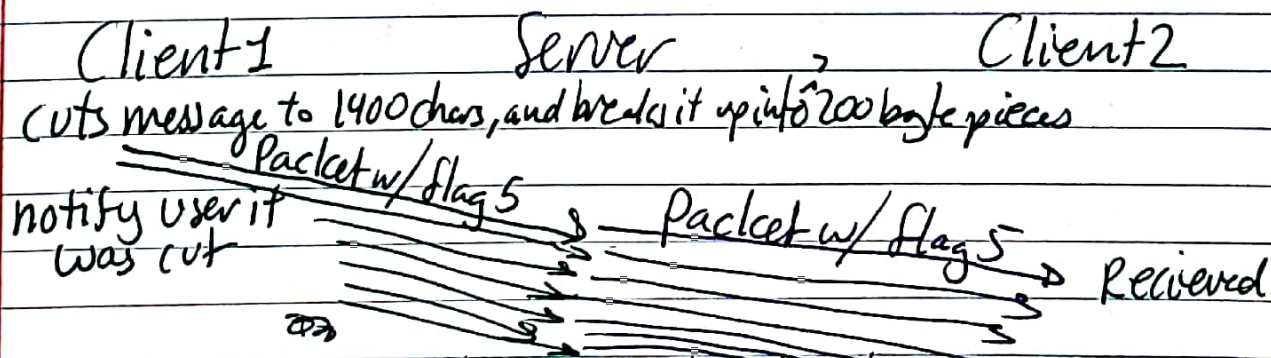 Client1 Server Client2
cuts message to 1400 chars, and breaks it up into 200 byte pieces
Packet w/ flag 5
Packet w/ flag 5
notify user it
was cut
Recieved